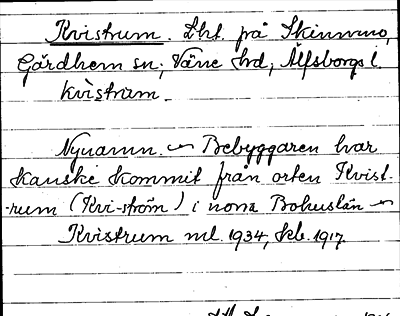 Kvistrum. Lht. på Skinnmo,
Gärdhem sn; Väne hd; Älfsborgs l.
kvìstrum.
Nynamn. ~ Bebyggaren har
kanske kommit från orten Kvist-
-rum (Kvi-ström) i norra Bohuslän ~
Kvistrum ml. 1934, Skb. 1917.